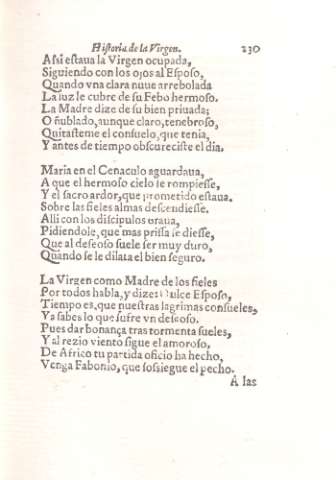 Historia de la Virgen. 230
Assi estaua la Virgen ocupada,
Siguiendo con los ojos al Esposo,
Quando vna clara nuue arrebolada
La luz le cubre de su Febo hermoso.
La Madre dize de su bien priuada;
O ñublado, aunque claro, tenebroso,
Quitasteme el consuelo, que tenia,
Y antes de tiempo obscureciste el dia.
Maria en el Cenaculo aguardaua,
A que el hermoso cielo se rompiesse,
Y el sacro ardor, que prometido estaua.
Sobre las fieles almas descendiesse.
Alli con los discipulos oraua,
Pidiendole, que mas prissa se diesse,
Que al deseoso suele ser muy duro,
Quando se le dilata el bien seguro.
La Virgen como Madre de los fieles
Por todos habla, y dize: Dulce Esposo,
Tiempo es, que nuestras lagrimas consueles,
Ya sabes lo que sufre vn deseoso.
Pues dar bonança tras tormenta sueles,
Y al rezio viento sigue el amoroso,
De Africo tu partida oficio ha hecho,
Venga Fabonio, que sossiegue el pecho.
A las